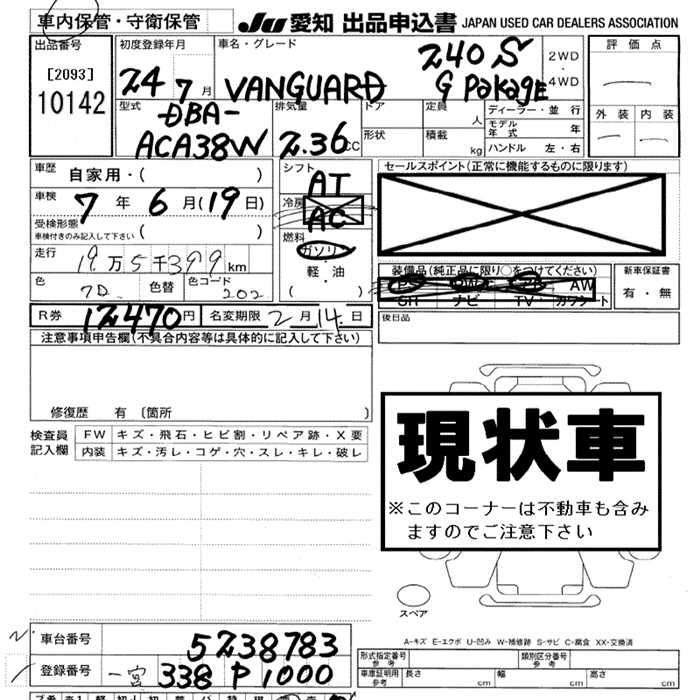 車内保管・守衛保管 JU 愛知 出品申込書 JAPAN USED CAR DEALERS ASSOCIATION
出品番号 初度登録年月 車名・グレード 2WD ・ 4WD 評価点
[2093] 24 7月 VANGUARD 240S
10142 G PakagE
型式 排気量 ドア 定員 人 ディーラー・並行 外装 内装
DBA- モデル年式 年
ACA38W 2.36 CC 形状 積載 kg ハンドル 左・右
車歴 自家用・( ) シフト AT セールスポイント(正常に機能するものに限ります)
車検 7年 6月(19日) 冷房 AC
受検形態 ( )
車検付きのみ記入して下さい
燃料 ガソリン
走行 19万5千399km 軽・油
装備品(純正品に限り○をつけてください) 新車保証書
色 7D 色替 色コード 202 ( )
PS PW AW 有・無
SR ナビ TV カワシート
R券 12470円 名変期限 2月14日 後日品
注意事項申告欄(不具合内容等は具体的に記入して下さい)
現状車
※このコーナーは不動車も含み
ますのでご注意下さい
修復歴 有 [箇所 ]
検査員 FW キズ・飛石・ヒビ割・リペア跡・X要
記入欄 内装 キズ・汚レ・コゲ・穴・スレ・キレ・破レ
スペア
A-キズ E-エクボ U-凹み W-補修跡 S-サビ C-腐食 XX-交換済
車台番号 5238783
形式指定番号 参考 類別区分番号 参考
登録番号 一宮 338 P 1000
車庫証明用 参考 長さ 幅 高さ